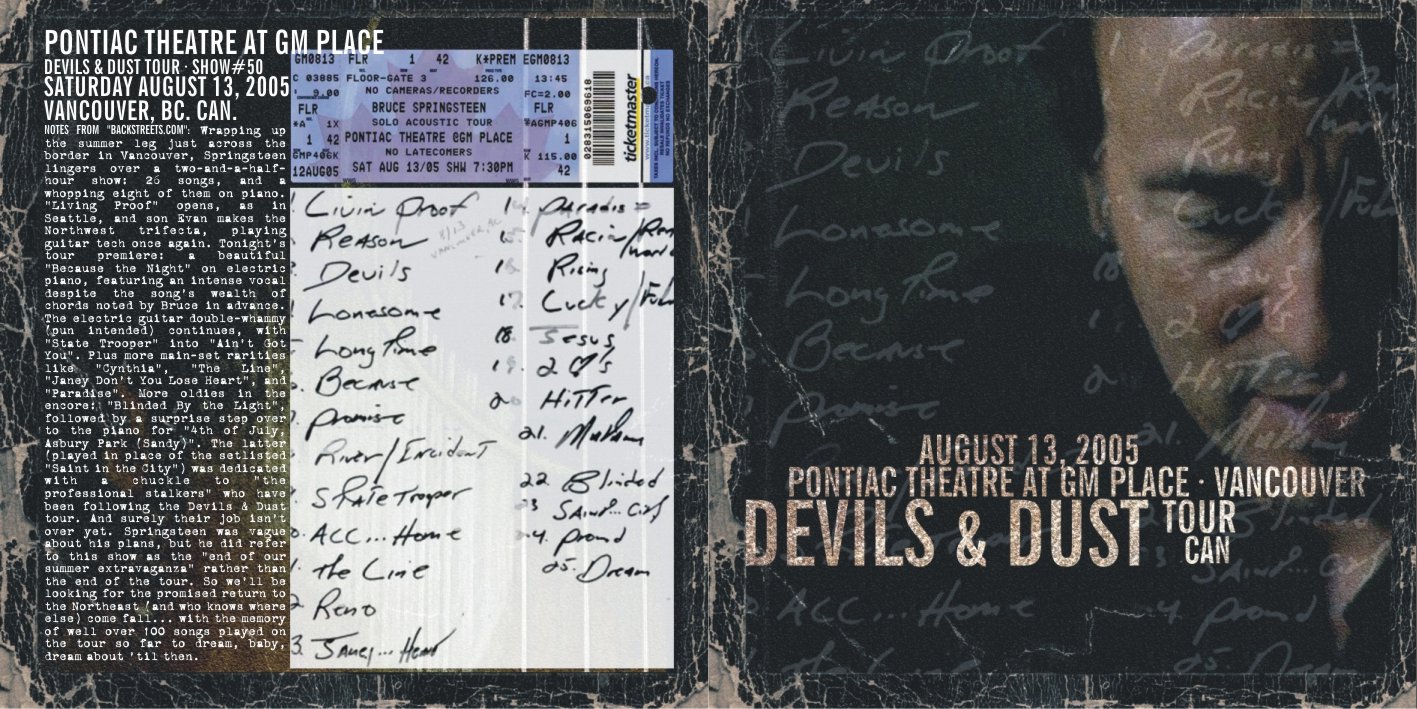 PONTIAC THEATRE AT GM PLACE
DEVILS & DUST TOUR · SHOW#50
SATURDAY AUGUST 13, 2005
VANCOUVER, BC. CAN.
NOTES FROM "BACKSTREETS.COM": Wrapping up
the summer leg just across the
border in Vancouver, Springsteen
lingers over a two-and-a-half-
hour show: 26 songs, and a
whopping eight of them on piano.
"Living Proof" opens, as in
Seattle, and son Evan makes the
Northwest trifecta, playing
guitar tech once again. Tonight's
tour premiere: a beautiful
"Because the Night" on electric
piano, featuring an intense vocal
despite the song's wealth of
chords noted by Bruce in advance.
The electric guitar double-whammy
(pun intended) continues, with
"State Trooper" into "Ain't Got
You". Plus more main-set rarities
like "Cynthia", "The Line",
"Janey Don't You Lose Heart", and
"Paradise". More oldies in the
encore: "Blinded By the Light",
followed by a surprise step over
to the piano for "4th of July,
Asbury Park (Sandy)". The latter
(played in place of the setlisted
"Saint in the City") was dedicated
with a chuckle to "the
professional stalkers" who have
been following the Devils & Dust
tour. And surely their job isn't
over yet. Springsteen was vague
about his plans, but he did refer
to this show as the "end of our
summer extravaganza" rather than
the end of the tour. So we'll be
looking for the promised return to
the Northeast (and who knows where
else) come fall... with the memory
of well over 100 songs played on
the tour so far to dream, baby,
dream about 'til then.
GM0813 FLR 1 42 K*PREM EGM0813
C 03885 FLOOR-GATE 3 126.00 13:45
9.00 NO CAMERAS/RECORDERS FC=2.00
FLR BRUCE SPRINGSTEEN FLR
*A 1X SOLO ACOUSTIC TOUR *AGMP406
1 42 PONTIAC THEATRE @GM PLACE 1
GMP406K NO LATECOMERS K 115.00
12AUG05 SAT AUG 13/05 SHW 7:30PM 42
028315069618
ticketmaster
Livin Proof
Reason
Devils
Lonesome
Long Time
Because
Promise
River/Incident
State Troper
ACC... Home
the Line
Reno
3. Janey... Heart
Paradis =
Racin/
Rising
17. Lucky/
18. Jesus
19. 2 ♡'s
20 Hitter
21. Matham
22 Blinded
23 Saint... City
24. Promd
25. Dream
AUGUST 13, 2005
PONTIAC THEATRE AT GM PLACE · VANCOUVER
DEVILS & DUST TOUR
CAN